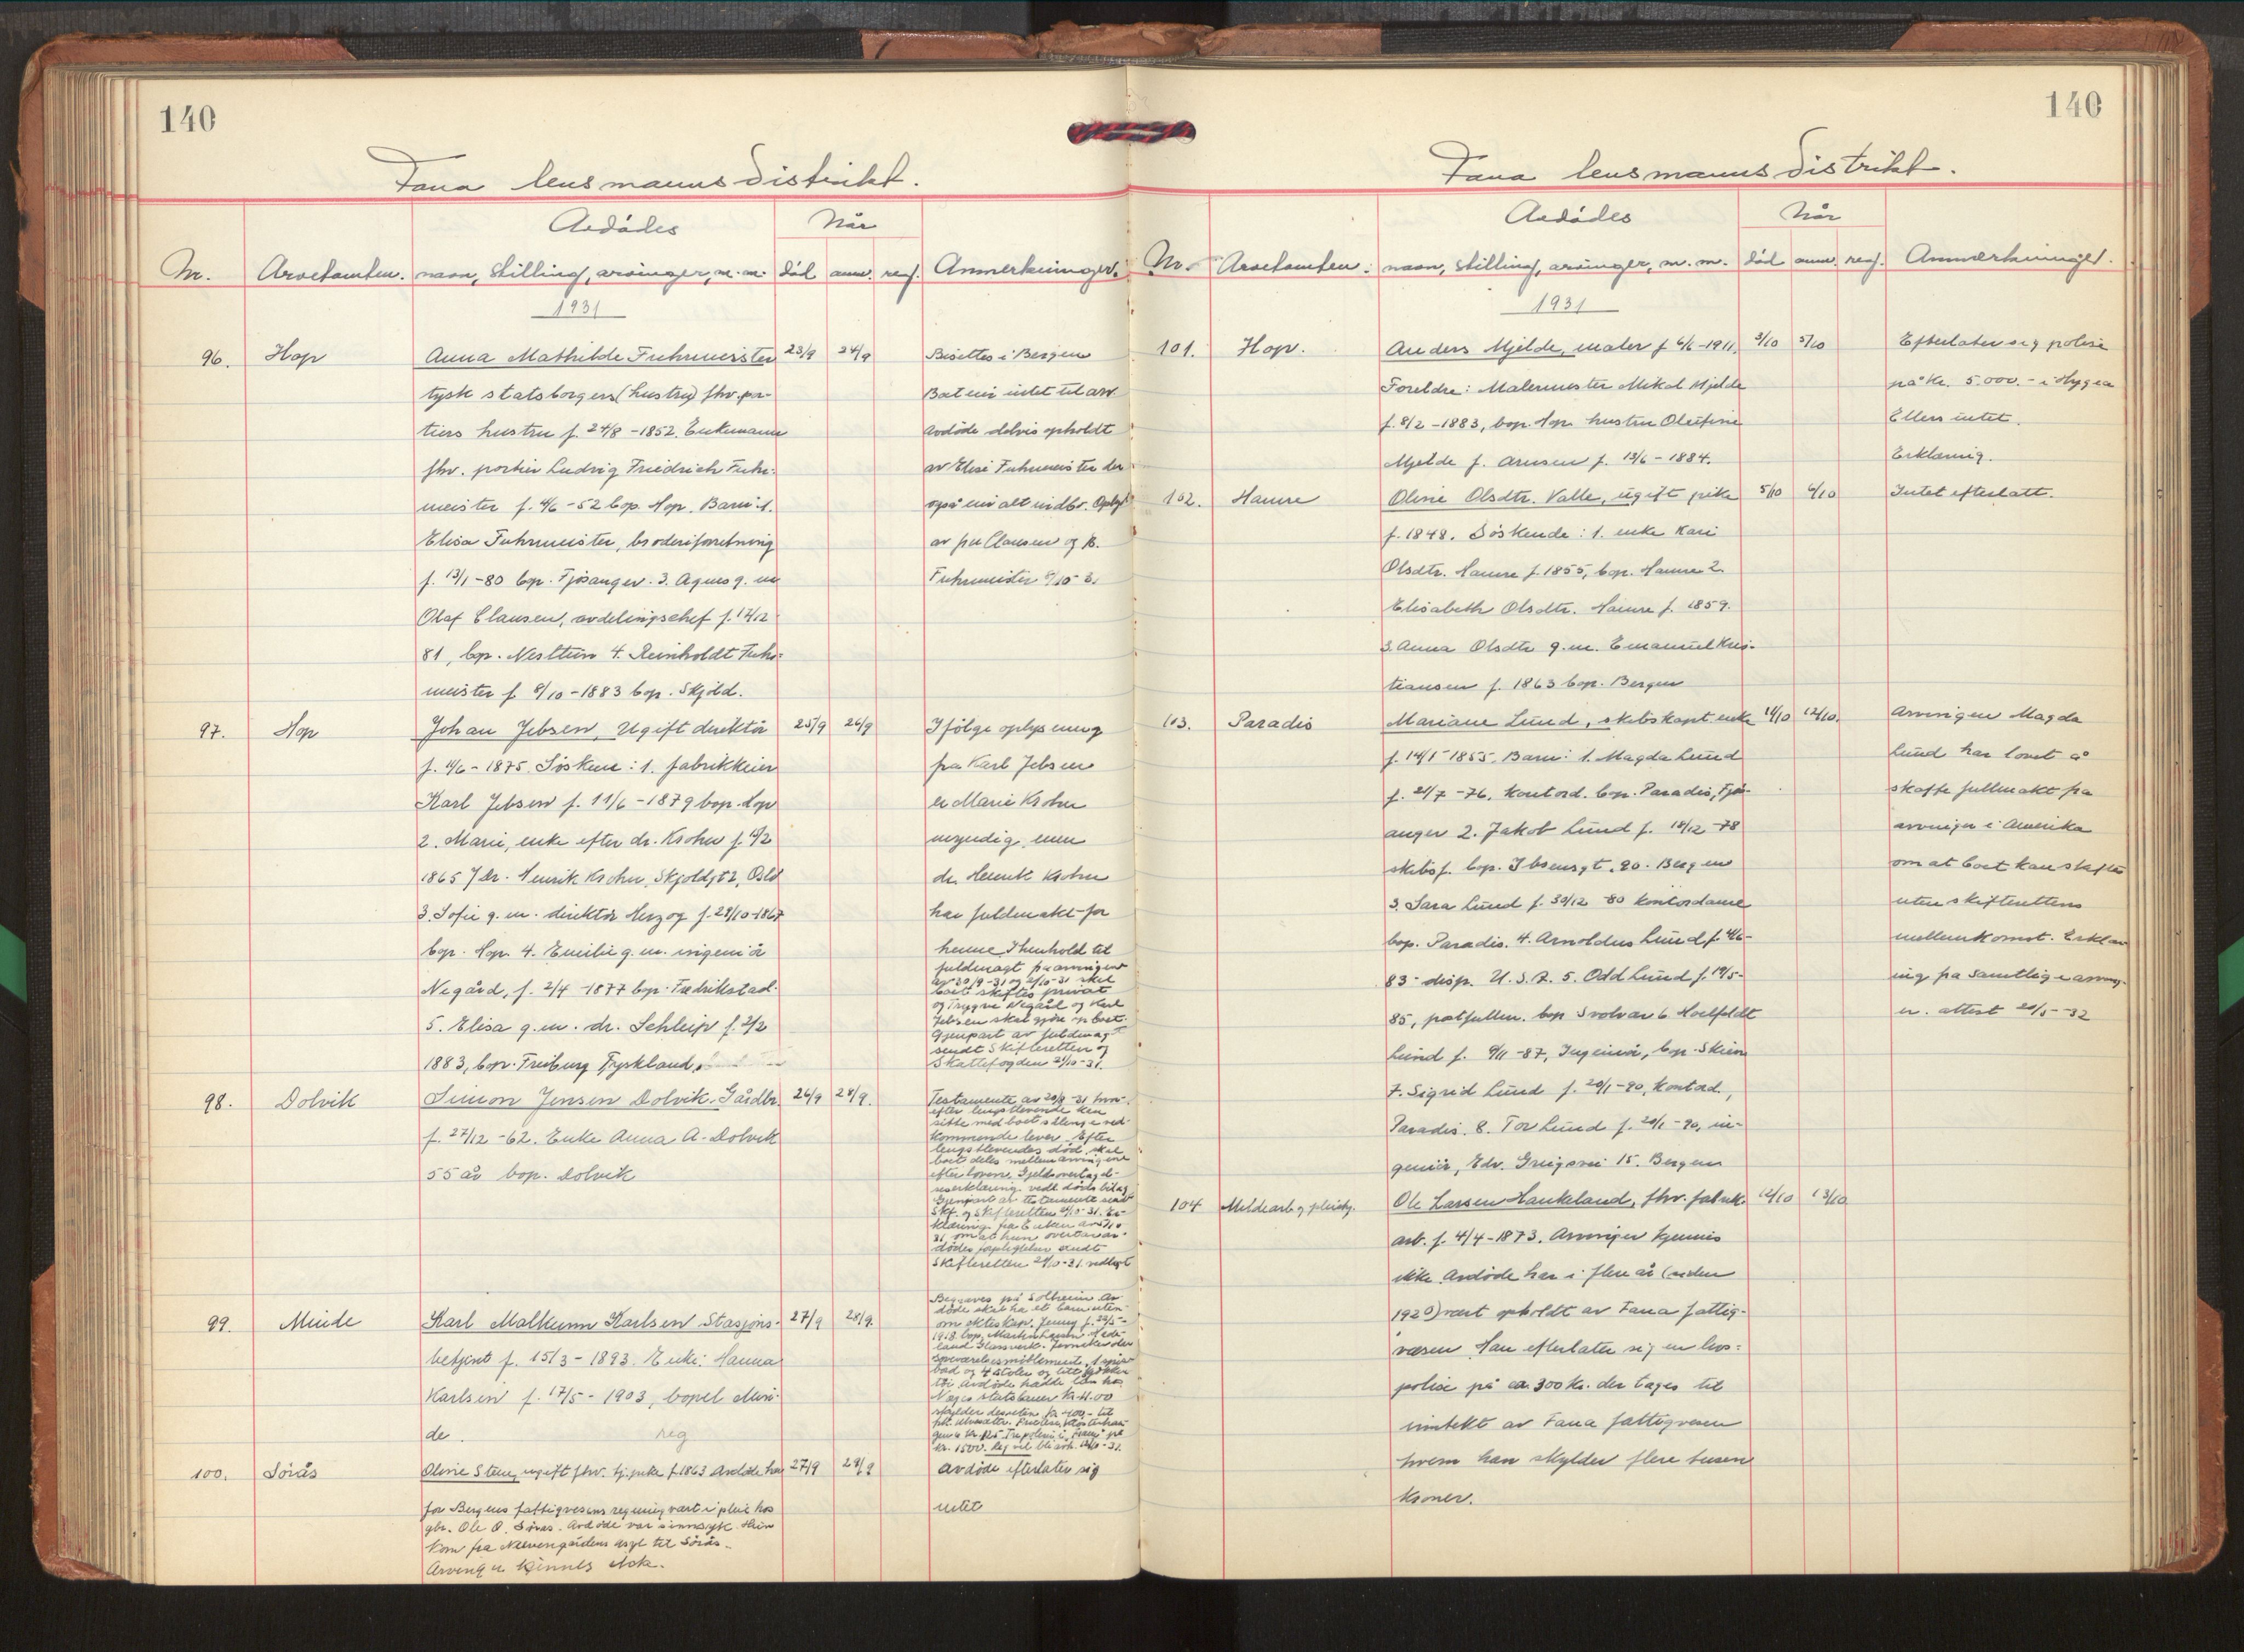 140
Fana lensmannsdistrikt.
Avdødes
Når
Nr. Arvetomten. navn, stilling, arvinger, m.m. død anm. reg. Anmerkninger.
1931
96. Hop Anna Mathilde Fuhrmeister 23/9 24/9 Bisettes i Bergen
tysk statsborger (hustru) fhv. por- Boet eier intet til arv
tiers hustru f. 24/8 - 1852. Enkemann Avdøde delvis opholdt
fhv. portier Ludvig Friedrich Fuhr- av Elise Fuhrmeister der
meister f. 4/6 - 52 bop. Hop. Barn: 1. også eier alt indbo.
Elisa Fuhrmeister, broderiforretning av fru Clausen og R.
f. 13/1 - 80 bop. Fjøsanger. 3. Agnes g. m Fuhrmeister 8/10 - 31
Olaf Clausen, avdelingschef f. 17/12
81, bop. Nesttun 4. Reinholdt Fuhr-
meister f. 8/10 - 1883 bop. Skjold.
97. Hop Johan Jebsen, Ugift direktør 25/9 26/9 Ifølge oplysning
f. 4/6 - 1875. Søsken: 1. fabrikkeier fra Karl Jebsen
Karl Jebsen f. 11/6 - 1879 bop. Hop er Marie Krohn
2. Marie, enke efter dr. Krohn f. umyndig, men
1865 / Dr. Henrik Krohn, Skjoldgt 2, Oslo dr. Henrik Krohn
3. Sofie g. m. direktør Herzog f. 28/10 - 1867 har fuldmakt for
bop. Hop. 4. Emilie g. m. ingeniør henne. I henhold til
fuldmagt fra arvingene
Negård, f. 2/4 - 1877 bop. Fredrikstad. av 30/9 - 31 og 2/10 - 31 skal
boet skiftes privat
og Trygve Negård og Karl
5. Elisa g. m. dr. Schleip f. 2/2 Jebsen skal gjøre op boet.
Gjenpart av fuldmagt
sendt Skifteretten og
1883, bop. Freiburg Tyskland. Skattefogden 21/10 - 31.
98. Dolvik Simon Jensen Dolvik. Gårdbr. 26/9 28/9. Testamente av 20/9 - 31 hvor-
efter lengstlevende kan
sitte med boet sålenge ved-
f. 27/12 - 62. Enke Anna A. Dolvik kommende lever. Efter
lengstlevendes død skal
boet deles mellem arvingene
55 år bop. Dolvik efter lovene. Gjeldsovertagel-
seserklæring vedl. døds
Gjenpart av testamente sendt
Skf. og Skifteretten
klæring fra Enken
31 om at hun overtar av-
dødes forpligtelser sendt
Skifteretten 21/10 - 31 vedlagt
99. Minde Karl Malkum Karlsen Stasjons- 27/9 28/9. Begraves på Solheim Av-
døde skal ha et barn uten-
om ekteskap. Jenny f.
1918. bop.
betjent f. 15/3 - 1893. Enke: Hanna
Karlsen f. 17/5 - 1903, bopel Min- Norges Statsbaner kr
de. reg kr. 1500.
100. Sørås Olivie Steen, ugift fhv. tj.pike f. 1863 Avdøde har 27/9 28/9 Avdøde efterlater sig
for Bergens fattigvesens regning vært i pleie hos intet
gbr. Ole O. Sørås. Avdøde var sinnsyk. Hun
kom fra Neevengårdens asyl til Sørås.
Arvinger kjennes ikke.
140
Fana lensmannsdistrikt.
Avdødes
Når
Nr. Arvetomten. navn, stilling, arvinger, m. m. død anm. reg. Anmerkninger.
1931
101. Hop. Anders Mjelde, maler f 6/6 - 1911. 3/10 5/10 Efterlater sig polise
Foreldre: Malermester Mikal Mjelde på kr. 5.000. - i Hygea
f. 8/2 - 1883, bop. Hop. hustru Olufine Ellers intet.
Mjelde f. Arnesen f. 13/6 - 1884. Erklæring.
102. Hamre Olivie Olsdtr. Valle, ugift pike 5/10 6/10 Intet efterlatt.
f. 1848. Søskende: 1. enke Kari
Olsdtr. Hamre f. 1855, bop. Hamre 2.
Elisabeth Olsdtr. Hamre f. 1859.
3. Anna Olsdtr g. m. Emanuel Kris-
tiansen f. 1863 bop. Bergen
103. Paradis Mariane Lund, skibskapt. enke 11/10 12/10. Arvingen Magda
f. 14/1 - 1855. Barn: 1. Magda Lund Lund har lovet å
f. 21/7 - 76. Kontord. bop. Paradis, Fjøs- skaffe fullmakt fra
anger 2. Jakob Lund f. 18/12 - 78 arvinger i Amerika
skibsf. bop. Ibsensgt. 20. Bergen om at boet kan skiftes
3. Sara Lund f. 30/12 80 kontordame uten skifterettens
bop. Paradis. 4. Arnoldus Lund f. 4/6 - mellemkomst. Erklær
83 - disp. U.S.A. 5. Odd Lund f. 19/5 - ing fra samtlige arving.
85, postfullm. bop Svolvær 6 Hoelfeldt er. attest 20/5 - 32
Lund f. 9/11 - 87, Ingeniør, bop. Skien
7. Sigrid Lund f. 20/1 - 90, Kontord.,
Paradis. 8. Tor Lund f. 20/1 - 90, in-
geniør, Edv. Griegsvei 15. Bergen
104 Mildearb og pleiehj. Ole Larsen Haukeland, fhv. fabrik. 12/10 13/10
arb. f. 4/4 - 1873. Arvinger kjennes
ikke. Avdøde har i flere år (siden
1920) vært opholdt av Fana fattig-
vesen. Han efterlater sig en livs-
polise på ca. 300 kr. der tages til
inntekt av Fana fattigvesen
hvem han skylder flere tusen
kroner.